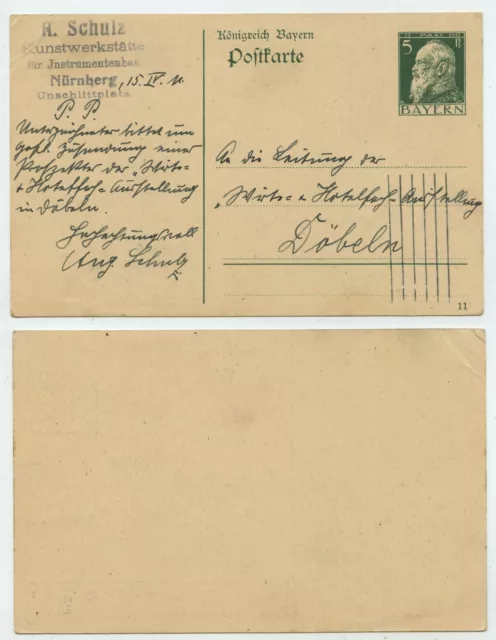 A. Schulz
Kunstwerkstätte
für Jnstrumentenbau
Nürnberg, 15. IV. 11.
Unschlittplatz
P. P.
Unterzeichneter bittet um
gefl. Zusendung einer
Prospektes der „Wirts-
+ Hotelfach-Ausstellung
in Döbeln.
Hochachtungsvoll
Aug. Schulz
Königreich Bayern
Postkarte
5 Pf
BAYERN
An die Leitung der
„Wirts- + Hotelfach-Ausstellung
Döbeln
11